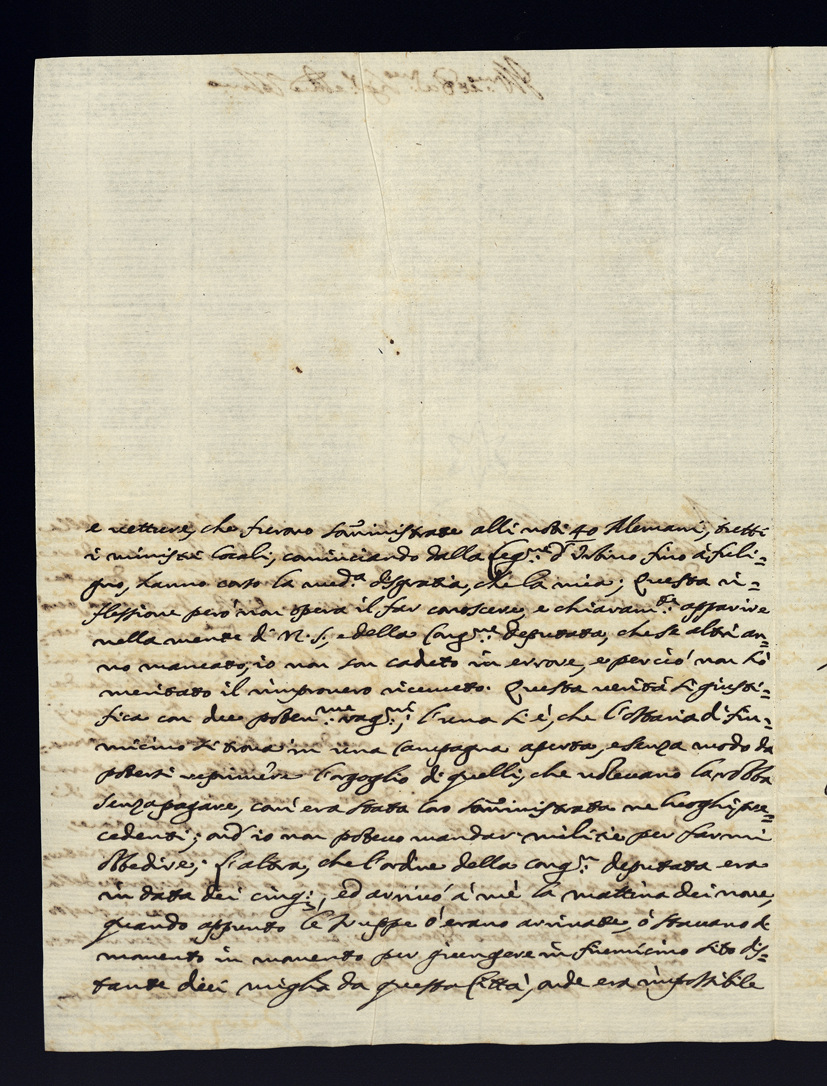 e vetture, che furono somministrate alli noti 40 Alemani, tutti
i ministri locali, cominciando dalla Leg.ne d'Urbino fino à Fuli=
gno, hanno corso la med.a disgratia, che la mia; Questa ri=
flessione però non opera il far conoscere, e chiaram.te apparire
nella mente di N. S., e della Cong.ne deputata, che se altri an=
no mancato, io non son caduto in errore, e perciò non hò
meritato il rimprovero ricevuto. Questa verità si giusti=
fica con due poten.me rag.ni; l'una si è, che l'Ostaria di Fiu=
micino si trova in una Campagna aperta, e senza modo da
potersi reprimere l'orgoglio di quelli, che volevano la robba
senza pagare, com'era stata loro somministrata ne luoghi pre=
cedenti; ond'io non potevo mandar militie per farmi
obbedire; L'altra, che l'ordine della Cong.ne deputata era
in data dei cinq:, ed arrivò à mè la mattina dei nove,
quando appunto le truppe ò erano arrivate, ò stavano di
momento in momento per giungere in Fiumicino sito dis=
tante dieci miglia da questa Città, onde era impossibile